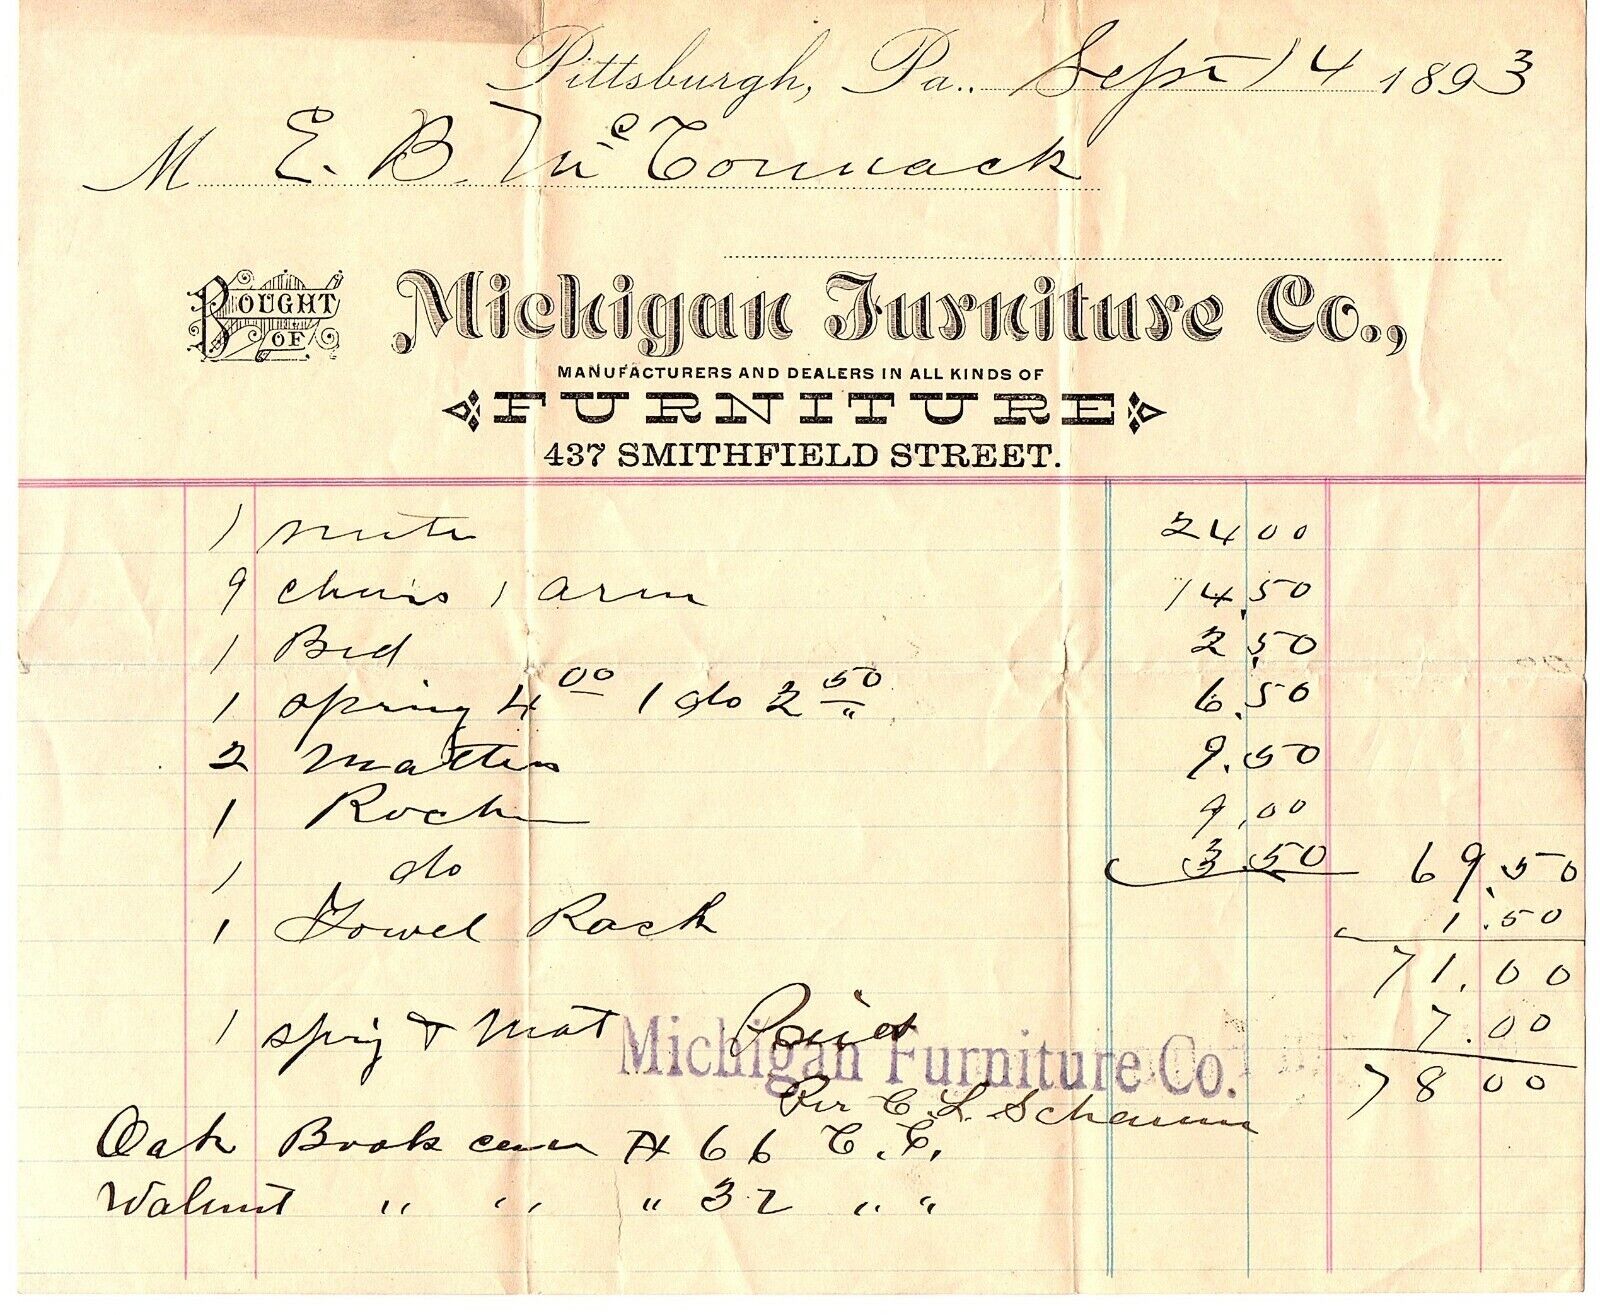 Pittsburgh, Pa.. Sept 14 1893
M E. B. McCormack
BOUGHT OF Michigan Furniture Co.,
MANUFACTURERS AND DEALERS IN ALL KINDS OF
FURNITURE
437 SMITHFIELD STREET.
1 24.00
9 chairs 1 arm 14.50
1 Bed 2.50
1 spring 4 00 1 do 2 50 6.50
2 Mattres 9.50
1 Rocker 9.00
1 do 3.50 69.50
1 Towel Rack 1.50
71.00
1 sprig & Mat Paid 7.00
Michigan Furniture Co.
78 00
Per C. L.
Oak Book case # 66 C. C.
Walnut " " " 32 " "